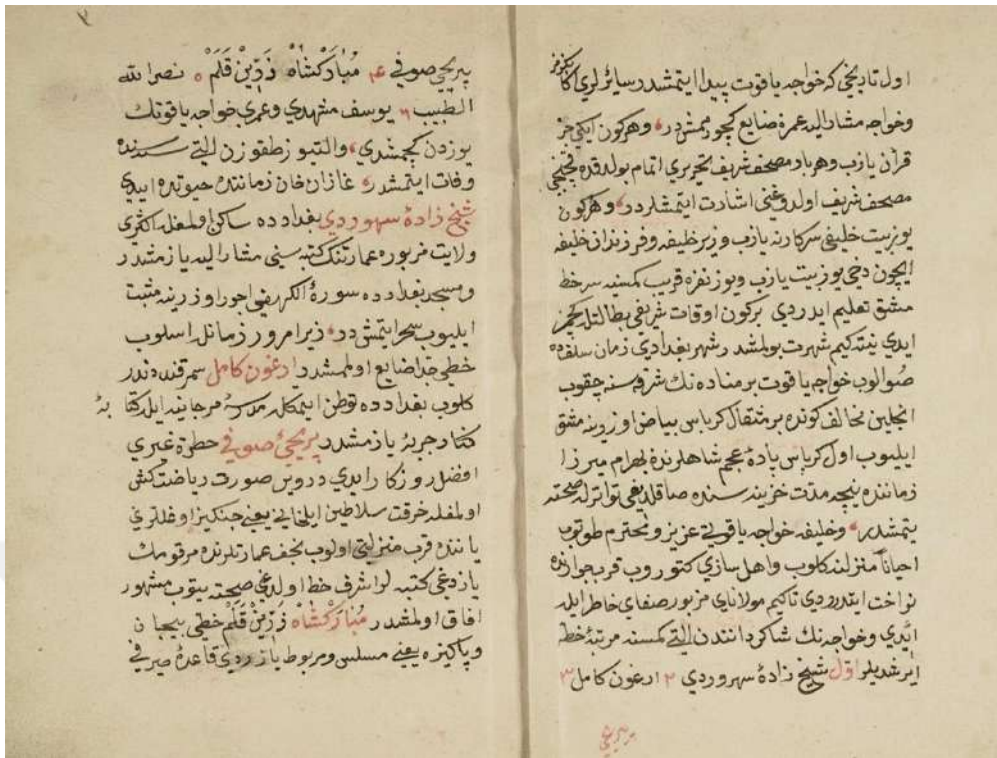 اول تاريخى كه خواجه ياقوت پيدا ايتمشدر سايرلرى كا
وخواجه مشار اليه عمره ضايع كچورممشدر وهركون ايكى جز
قرآن يازب وهر باد مصحف شريف تحريرى اتمام بولدقده قچنجى
مصحف شريف اولدوغنى اشارت ايتمشلردر وهركون
يوز بيت خليفه سركارنه يازب وزير خليفه وفرزندان خليفه
ايچون دخى يوز بيت يازب ويوز نفره قريب كمسنه سرخط
مشق تعليم ايدردى بركون اوقات شريفى بطالتله كچمز
ايدى نيته كيم شهرت بولمشدر شهر بغدادى زمان سلفده
صو الوب خواجه ياقوت بر مناره نك شرفه سنه چقوب
انجلين مخالف كونده بر مثقال كرباس بياض اوزرينه مشق
ايليوب اول كرباس پاره عجم شاهلرنده بهرام ميرزا
زماننده نيجه مدت خزينه سنده صاقلديغى تواترله صحته
يتمشدر وخليفه خواجه ياقوتى عزيز ومحترم طوتوب
احيانا منزلنه كلوب واهل سازى كتوروب قرب جوارنده
نواخت ايتدرردى تا كيم مولاناى مزبور صفاى خاطر ايله
ايدى وخواجه نك شاكردانندن التى كمسنه مرتبه خطه
ايرشديلر اول شيخ زادهٔ سهروردى ٢ ارغون كامل ٣
پير يحيى صوفى ۴ مُبٰارَكْشٰاهْ زَرّينْ قَلَمْ ٥ نصر الله
الطبيب ٦ يوسف مشهدى وعمرى خواجه ياقوتك
يوزدن كچمشدى والتيوز طقوزن التى سنه سنده
وفات ايتمشدر غازان خان زماننده حيوتده ايدى
شيخ زادهٔ سهروردى بغدادده ساكن اولمغله اكثرى
ولايت مزبوره عمارتنك كتبه سينى مشار اليه يازمشدر
ومسجد بغدادده سورة الكهفى اجور اوزرينه مثبت
ايليوب سحر ايتمش در زيرا مرور زمانله اسلوب
خطى جدا ضايع اولممشدر ارغون كامل سمرقنددندر
كلوب بغدادده توطن ايتمكله مدرسهٔ مرجانيه ايله كتابه
كنار جريه يازمشدر پير يحيى صوفى خطده عبرى
افضل روزكار ايدى درويش صورت رياضت كش
اولمغله خرقت سلاطين ايلخانى يعنى جنكيز اوغللرى
ياننده قرب منزلتى اولوب نجف عمارتلرنده مرقومك
يازدغى كتبه لر اشرف خط اولدغى صحته يتوب مشهور
افاق اولمشدر مُبٰارَكْشٰاهْ زَرّينْ قَلَمْ خطى بيجان
وپاكيزه يعنى مسلس ومربوط يازردى قاعدهٔ صيرفى
پير يحيى